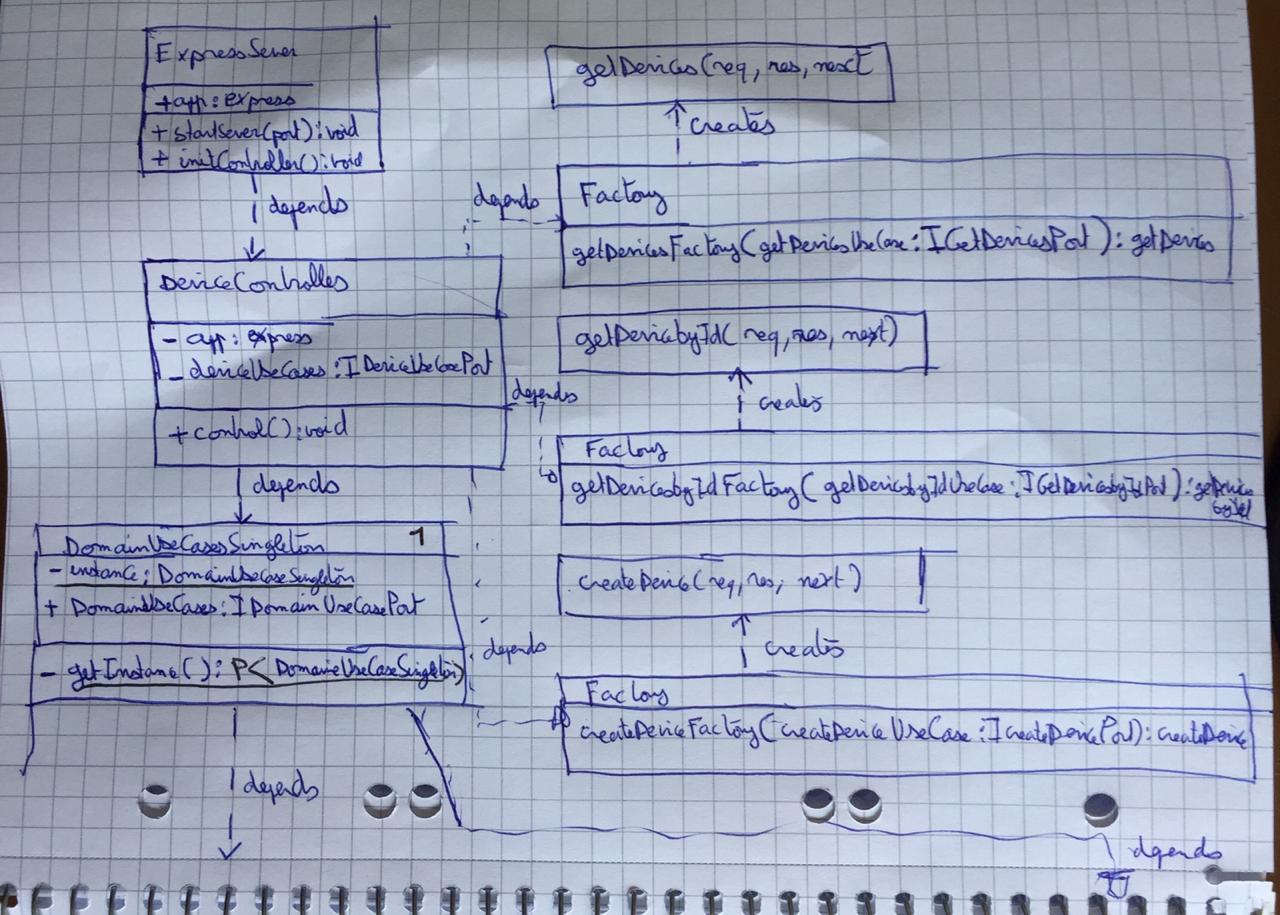 ExpressSever
+app: express
+ startSever(port): void
+ initController(): void
depends
DeviceControlles
- app: express
- deviceUseCases: IDeviceUseCasePort
+ control(): void
depends
DomainUseCasesSingleton 1
- instance: DomainUseCaseSingleton
+ DomainUseCases: IDomainUseCasePort
- getInstance(): P< DomaineUseCaseSingleton)
depends
getDevices(req, res, next
creates
depends
Factory
getDevicesFactory(getDevicesUseCase: IGetDevicesPort): getDevices
getDevicebyId( req, res, next)
depends
creates
Factory
getDevicesbyIdFactory( getDevicesbyIdUseCase: IGetDevicesbyIdPort): getDevices
byId
createDevice(req, res, next)
creates
depends
Factory
createDeviceFactory(createDeviceUseCase: IcreateDevicePort): createDevice
depends